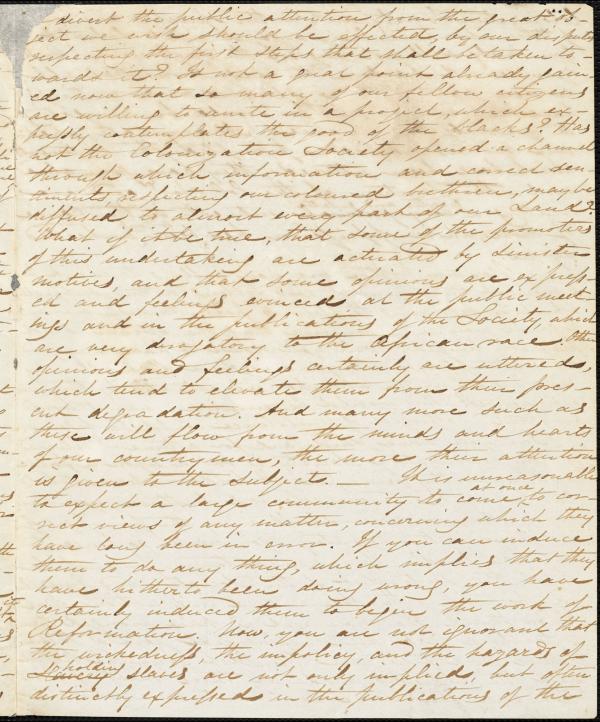 divert the public attention from the great ob-
ject we wish should be effected, by our disputes
respecting the first steps that shall be taken to
wards it? Is not a great point already gain-
ed now that so many of our fellow citizens
are willing to unite in a project, which ex-
pressly contemplates the good of the blacks? Has
not the Colonization Society opened a channel
through which information and correct sen-
timents, respecting our coloured brethren, may be
diffused to almost every part of our Land?
What if it be true, that some of the promoters
of this undertaking are actuated by sinister
motives, and that some opinions are express
ed and feelings evinced at the public meet
ings and in the publications of the Society, which
are very derogatory to the African race. Other
opinions and feelings certainly are uttered,
which tend to elevate them from their pres-
ent degradation. And many more such as
these will flow from the minds and hearts
of our countrymen, the more their attention
is given to the subject. — It is unreasonable
to expect a large community to come at once to cor-
rect views of any matter, concerning which they
have long been in error. If you can induce
them to do any thing, which implies that they
have hitherto been doing wrong, you have
certainly induced them to begin the work of
Reformation. Now, you are not ignorant that
the wickedness, the impolicy, and the hazards of
holding slaves, are not only implied, but often
distinctly expressed in the publications of the